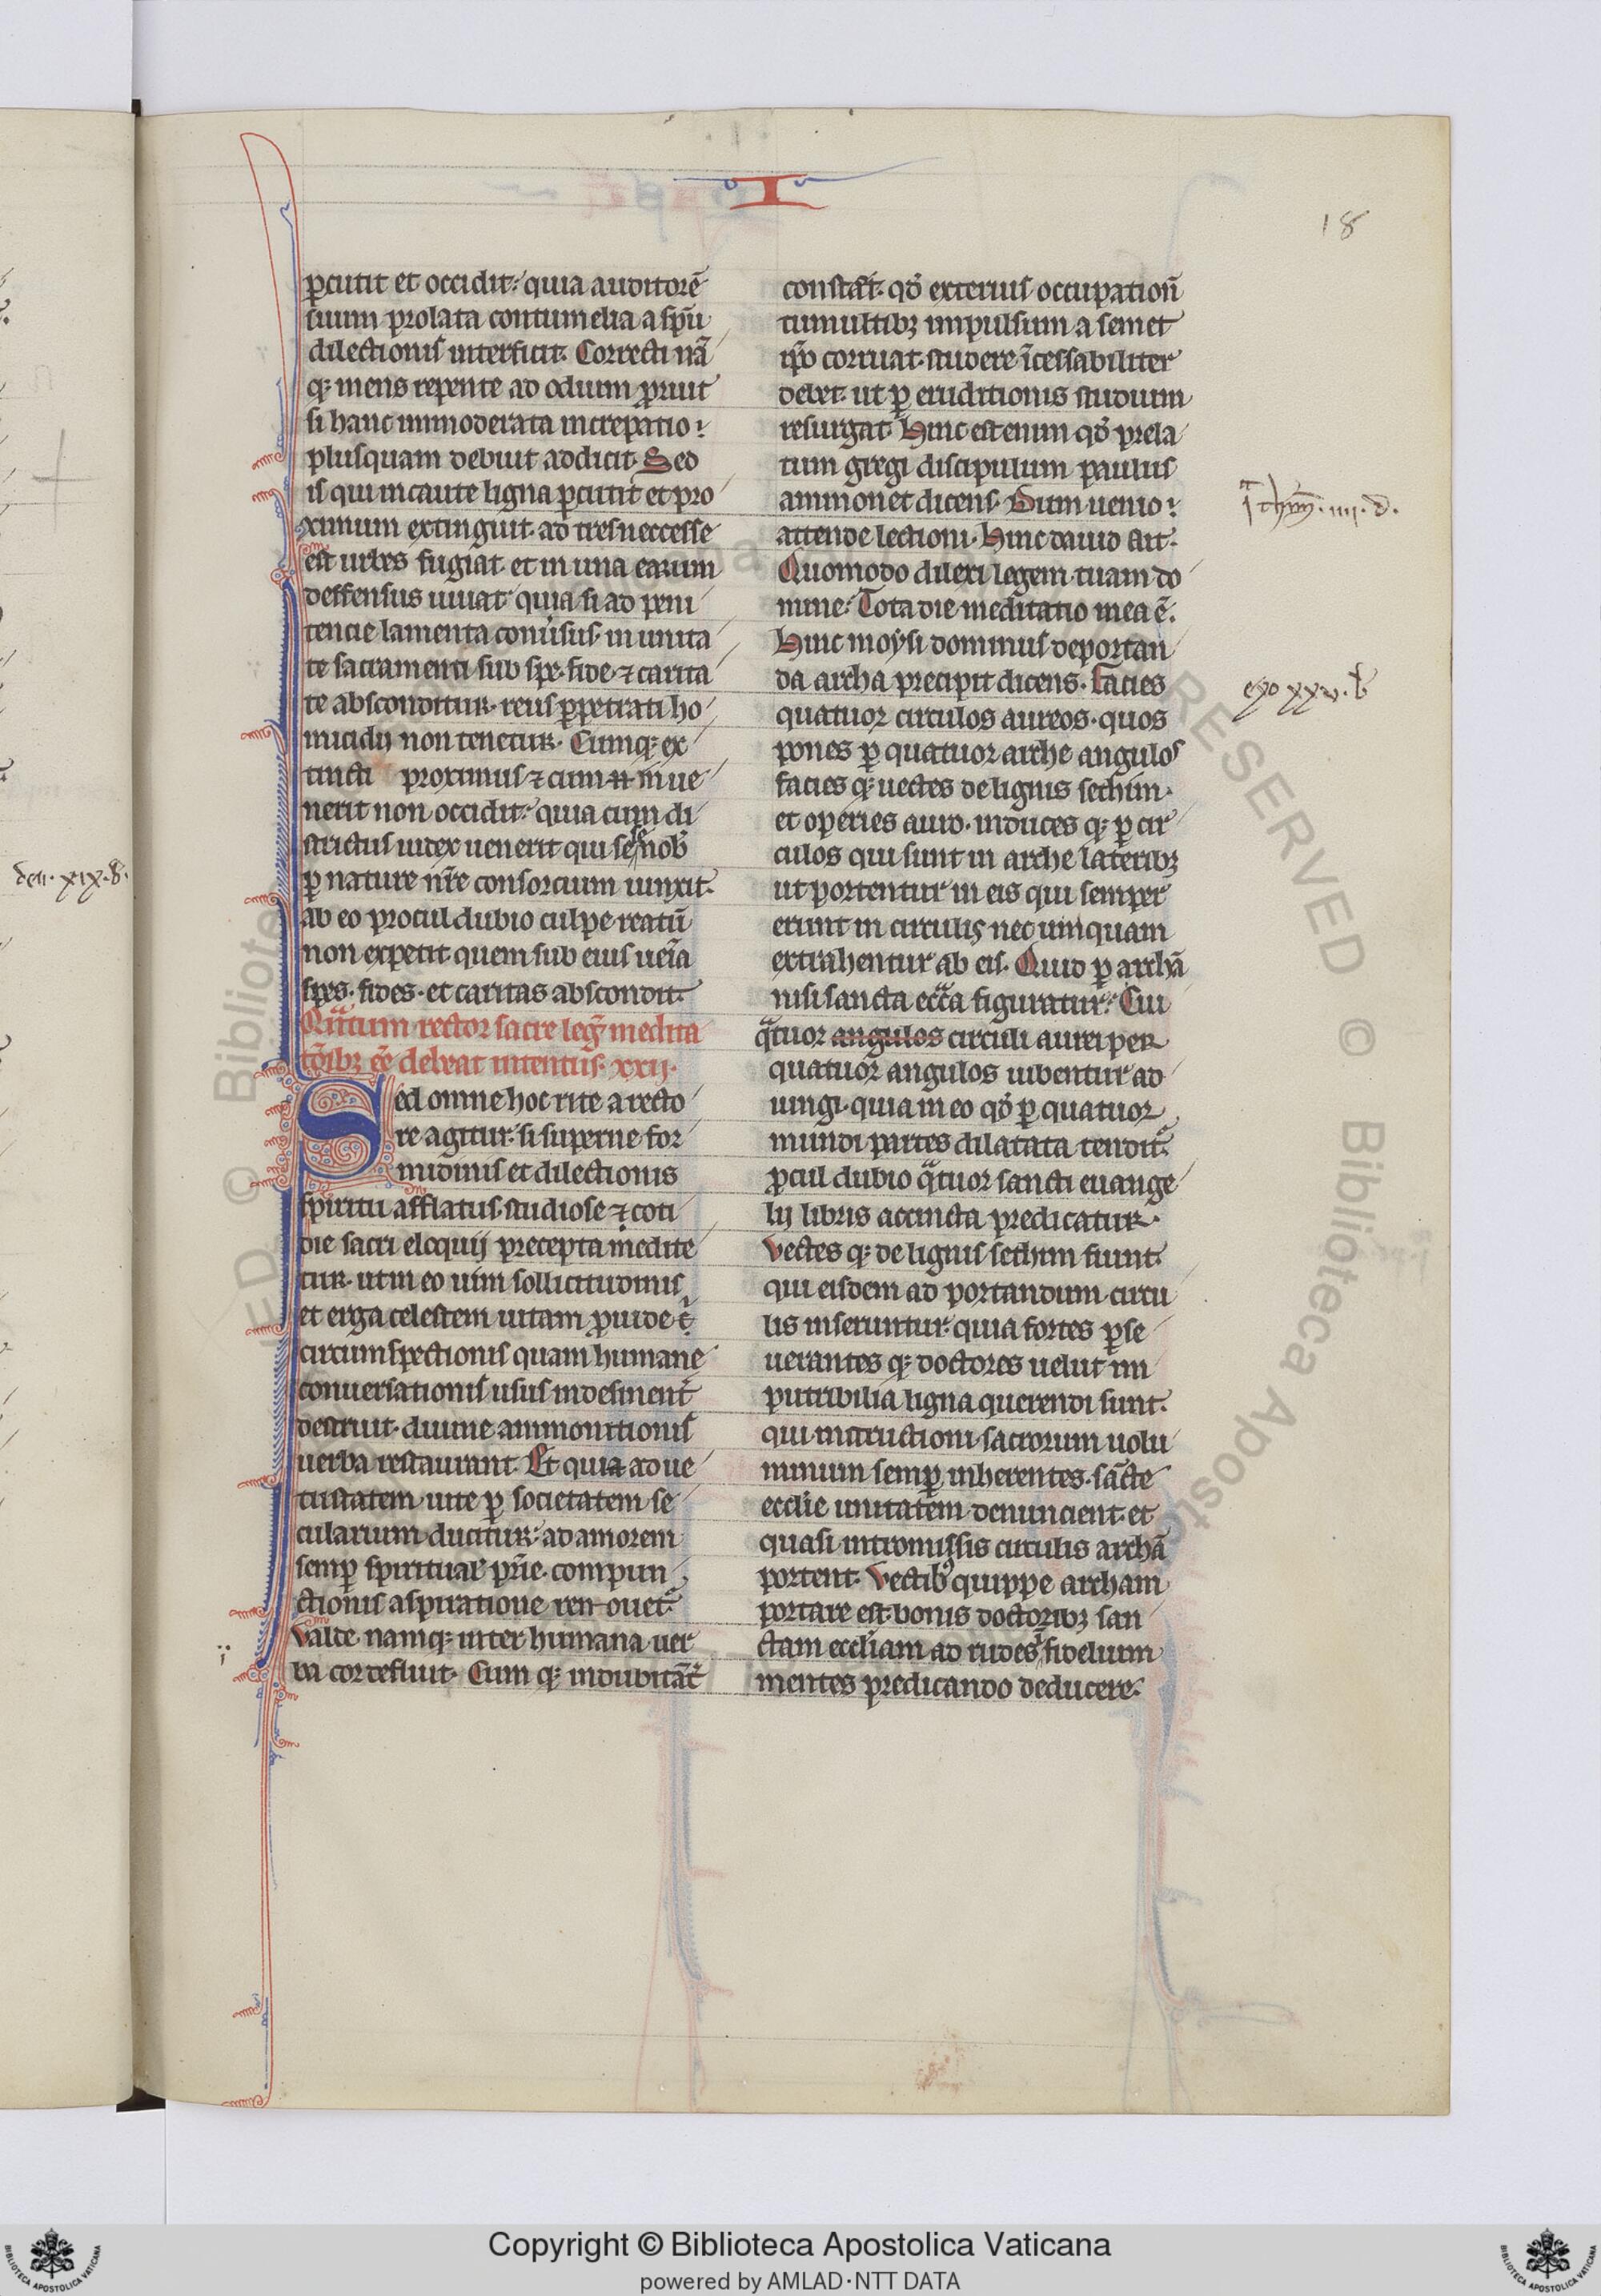 I
18
p̱cutit et occidit: quia auditorē
suum prolata contumelia a sp̄u
dilectionis interficit. Correcti nā
q; mens repente ad odium p̱ruit
si hanc immoderata increpatio:
plusquam debuit addicit. Sed
is qui incaute ligna p̱cutit et pro
ximum extinguit. ad tres neccesse
est urbes fugiat et in una earum
deffensus uiuat quia si ad peni
tencie lamenta conu̓sus. in unita
te sacramenti sub spe. fide. ⁊ carita
te absconditur. reus p̱petrati ho
micidij non tenetur. Cumq; ex
tincti proximus ⁊ cum inue
nerit non occidit: quia cum di
strictus iudex uenerit qui se nob̓
p̱ nature nr̄e consorcium iunxit.
ab eo procul dubio culpe reatū
non expetit quem sub eius ueīa
spes. fides. et caritas abscondit.
Qūtum rector sacre leg̓ medita
tōibꝫ ēe debeat intentus. xxij.
Sed omne hoc rite a recto
re agitur. si superne for
midinis et dilectionis
spiritu afflatus. studiose ⁊ coti
die sacri eloquij precepta medite
tur. ut in eo uim sollicitudinis
et erga celestem uitam p̱uide
circumspectionis quam humane
conuersationis usus indesinent̓
destruit. diuine ammonitionis
uerba restaurant. Et quia ad ue
tustatem uite p̱ societatem se
cularium ducitur: ad amorem
semp̱ spiritual̓ pr̄ie. compun
ctionis aspiratione renouet̓.
Valde namq; inter humana uer
ba cor defluit. Cum q; indubitāt̓
constat. qđ exterius occupationū
tumultibꝫ impulsum a semet
ip̄o corruat. studere īcessabiliter
debet. ut p̱ eruditionis studium
resurgat. Hinc est enim qđ prela
tum gregi discipulum paulus
ammonet dicens. Dum uenio:
attende lectioni. Hinc dauid ait.
Quomodo dilexi legem tuam do
mine: Tota die meditatio mea ē.
Hinc moẏsi dominus deportan
da archa precipit dicens. Facies
quatuor circulos aureos. quos
pones p̱ quatuor arche angulos
facies q; uectes de lignis sethim.
et operies auro. induces q; p̱ cir
culos qui sunt in arche lateribꝫ
ut portentur in eis qui semper
erunt in circulis nec umquam
extrahentur ab eis. Quid p̱ archā
nisi sancta ecc̄a figuratur: Cui
q̄tuor angulos circuli aurei per
quatuor angulos iubentur ad
iungi. quia in eo qđ p̱ quatuor
mundi partes dilatata tendit̓.
p̱cul dubio q̄tuor sancti euange
lij libris accincta predicatur.
Vectes q; de lignis sethim fiunt.
qui eisdem ad portandum circu
lis inseruntur. quia fortes p̱se
uerantes q; doctores uelut im
putribilia ligna querendi sunt.
qui instructioni sacrorum uolu
minum semp̱ inherentes. sāc̄te
ecclie unitatem denuncient. et
quasi intromissis circulis archā
portent. Vectib̓ quippe archam
portare est. bonis doctoribꝫ san
ctam eccliam ad rudes īfidelium
mentes predicando deducere.
ī thym̄. iiij. d.
exo xxv. b
deu. xix. b.
Copyright © Biblioteca Apostolica Vaticana
powered by AMLAD·NTT DATA